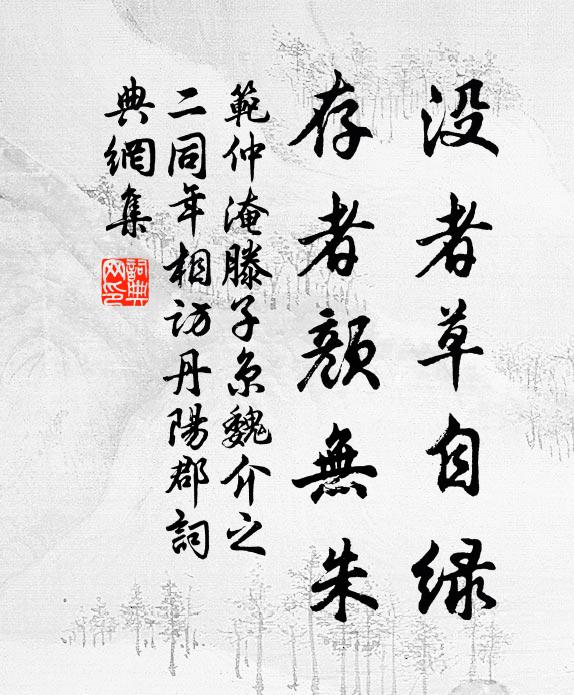 没者草自绿
存者颜無朱
範仲淹滕子京魏介之
二同年相访丹陽郡詞
典網集
詞典
网印